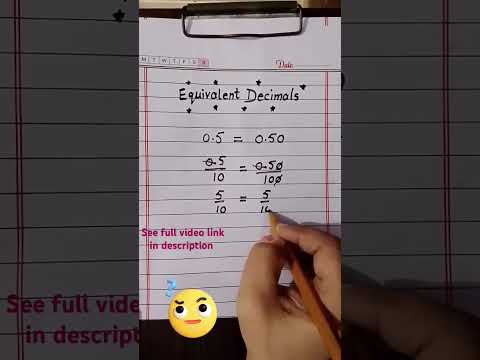 M T W T F S S
Date
Equivalent Decimals
0.5 = 0.50
0.5/10 = 0.50/100
5/10 = 5/1
See full video link
in description
See full video
in description